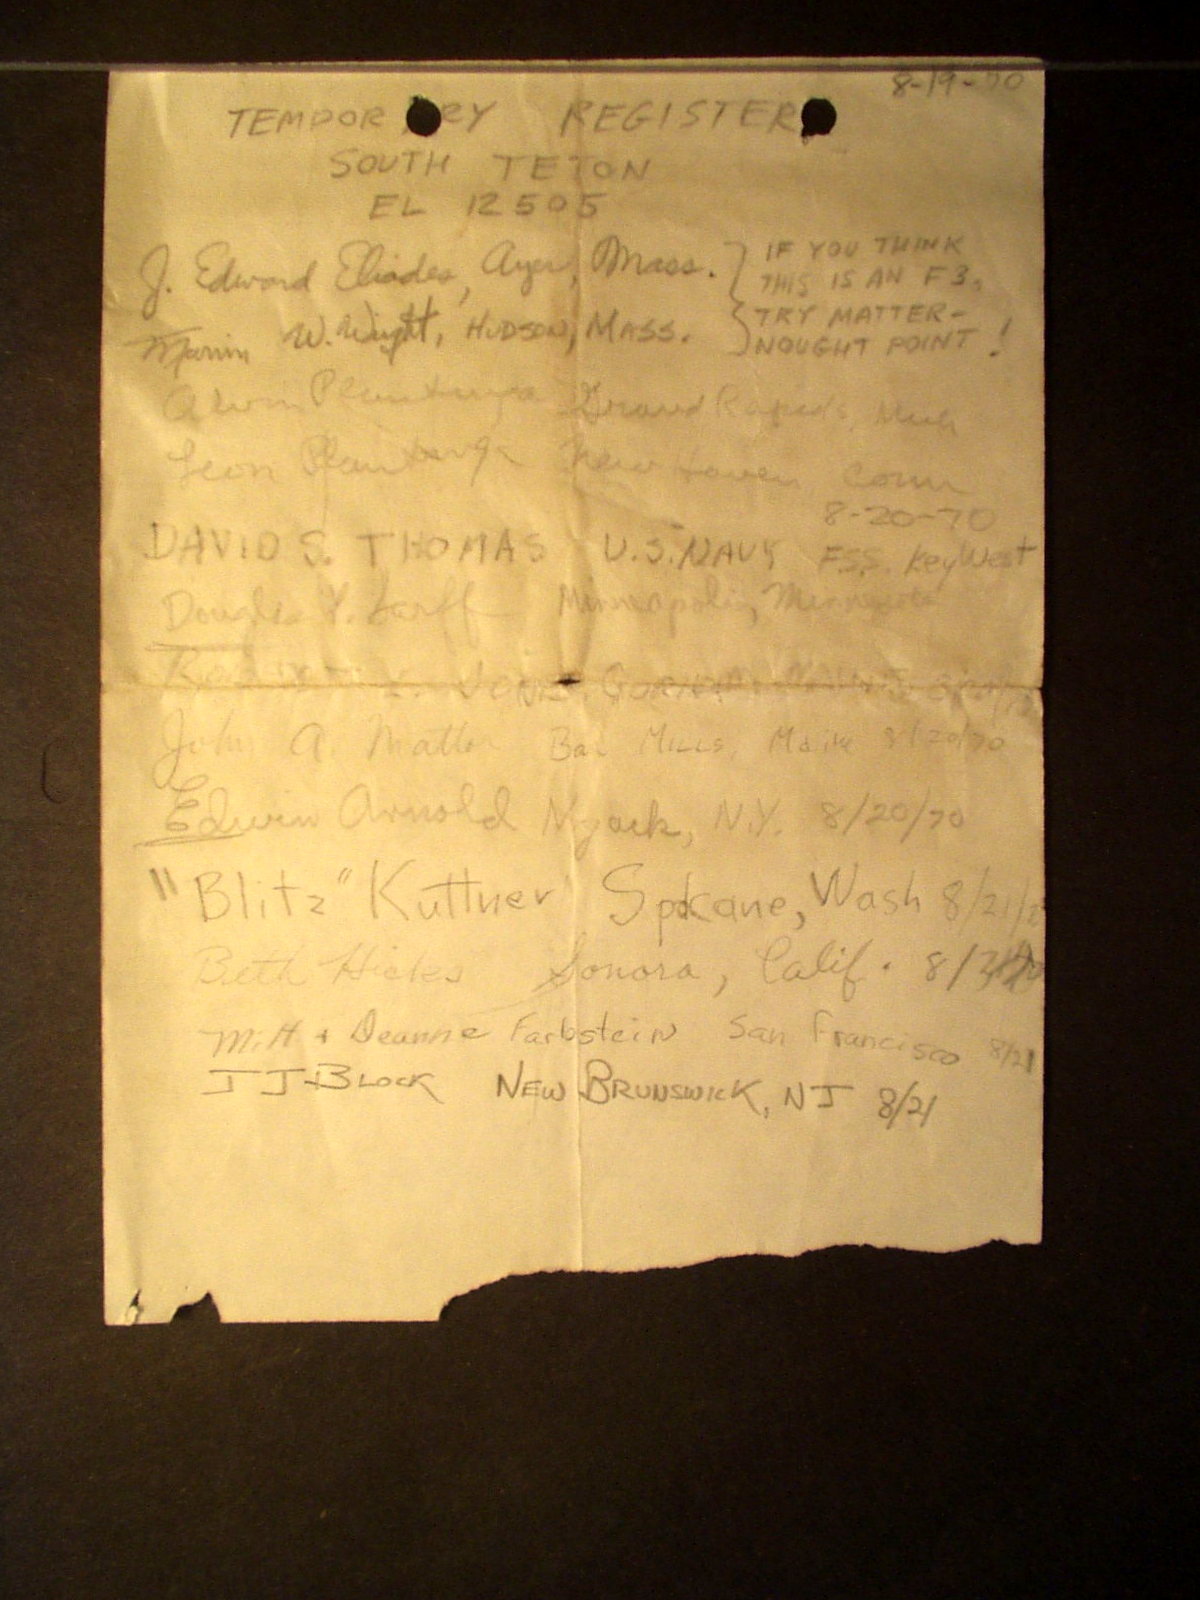 8-19-70
TEMPORARY REGISTER
SOUTH TETON
EL 12505
J. Edward Eliades, Ayer, Mass. } IF YOU THINK
THIS IS AN F3,
Marvin W. Wright, HUDSON, MASS. } TRY MATTER-
NOUGHT POINT!
Alvin Plantinga Grand Rapids, Mich
Leon Plantinga New Haven Conn
8-20-70
DAVID S. THOMAS U.S. NAVY FSS. Key West
Douglas Minneapolis, Minnesota
ROBERT E. JONES GORHAM, MAINE 8/20/70
John A. Bar MILLS, Maine 8/20/70
Edwin Arnold Nyack, N.Y. 8/20/70
"Blitz" Kuttner Spokane, Wash 8/21/7
Beth Hicks Sonora, Calif. 8/21/70
Milt + Deanne Farbstein San Francisco 8/21
J J BLOCK NEW BRUNSWICK, NJ 8/21